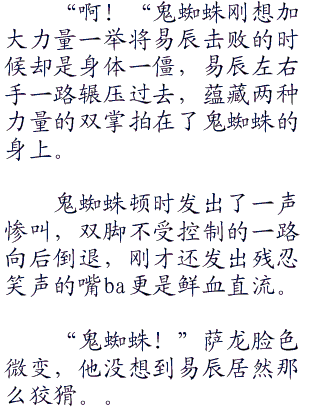 “啊！“鬼蜘蛛刚想加
大力量一举将易辰击败的时
候却是身体一僵，易辰左右
手一路辗压过去，蕴藏两种
力量的双掌拍在了鬼蜘蛛的
身上。
鬼蜘蛛顿时发出了一声
惨叫，双脚不受控制的一路
向后倒退，刚才还发出残忍
笑声的嘴ba更是鲜血直流。
“鬼蜘蛛！”萨龙脸色
微变，他没想到易辰居然那
么狡猾。。